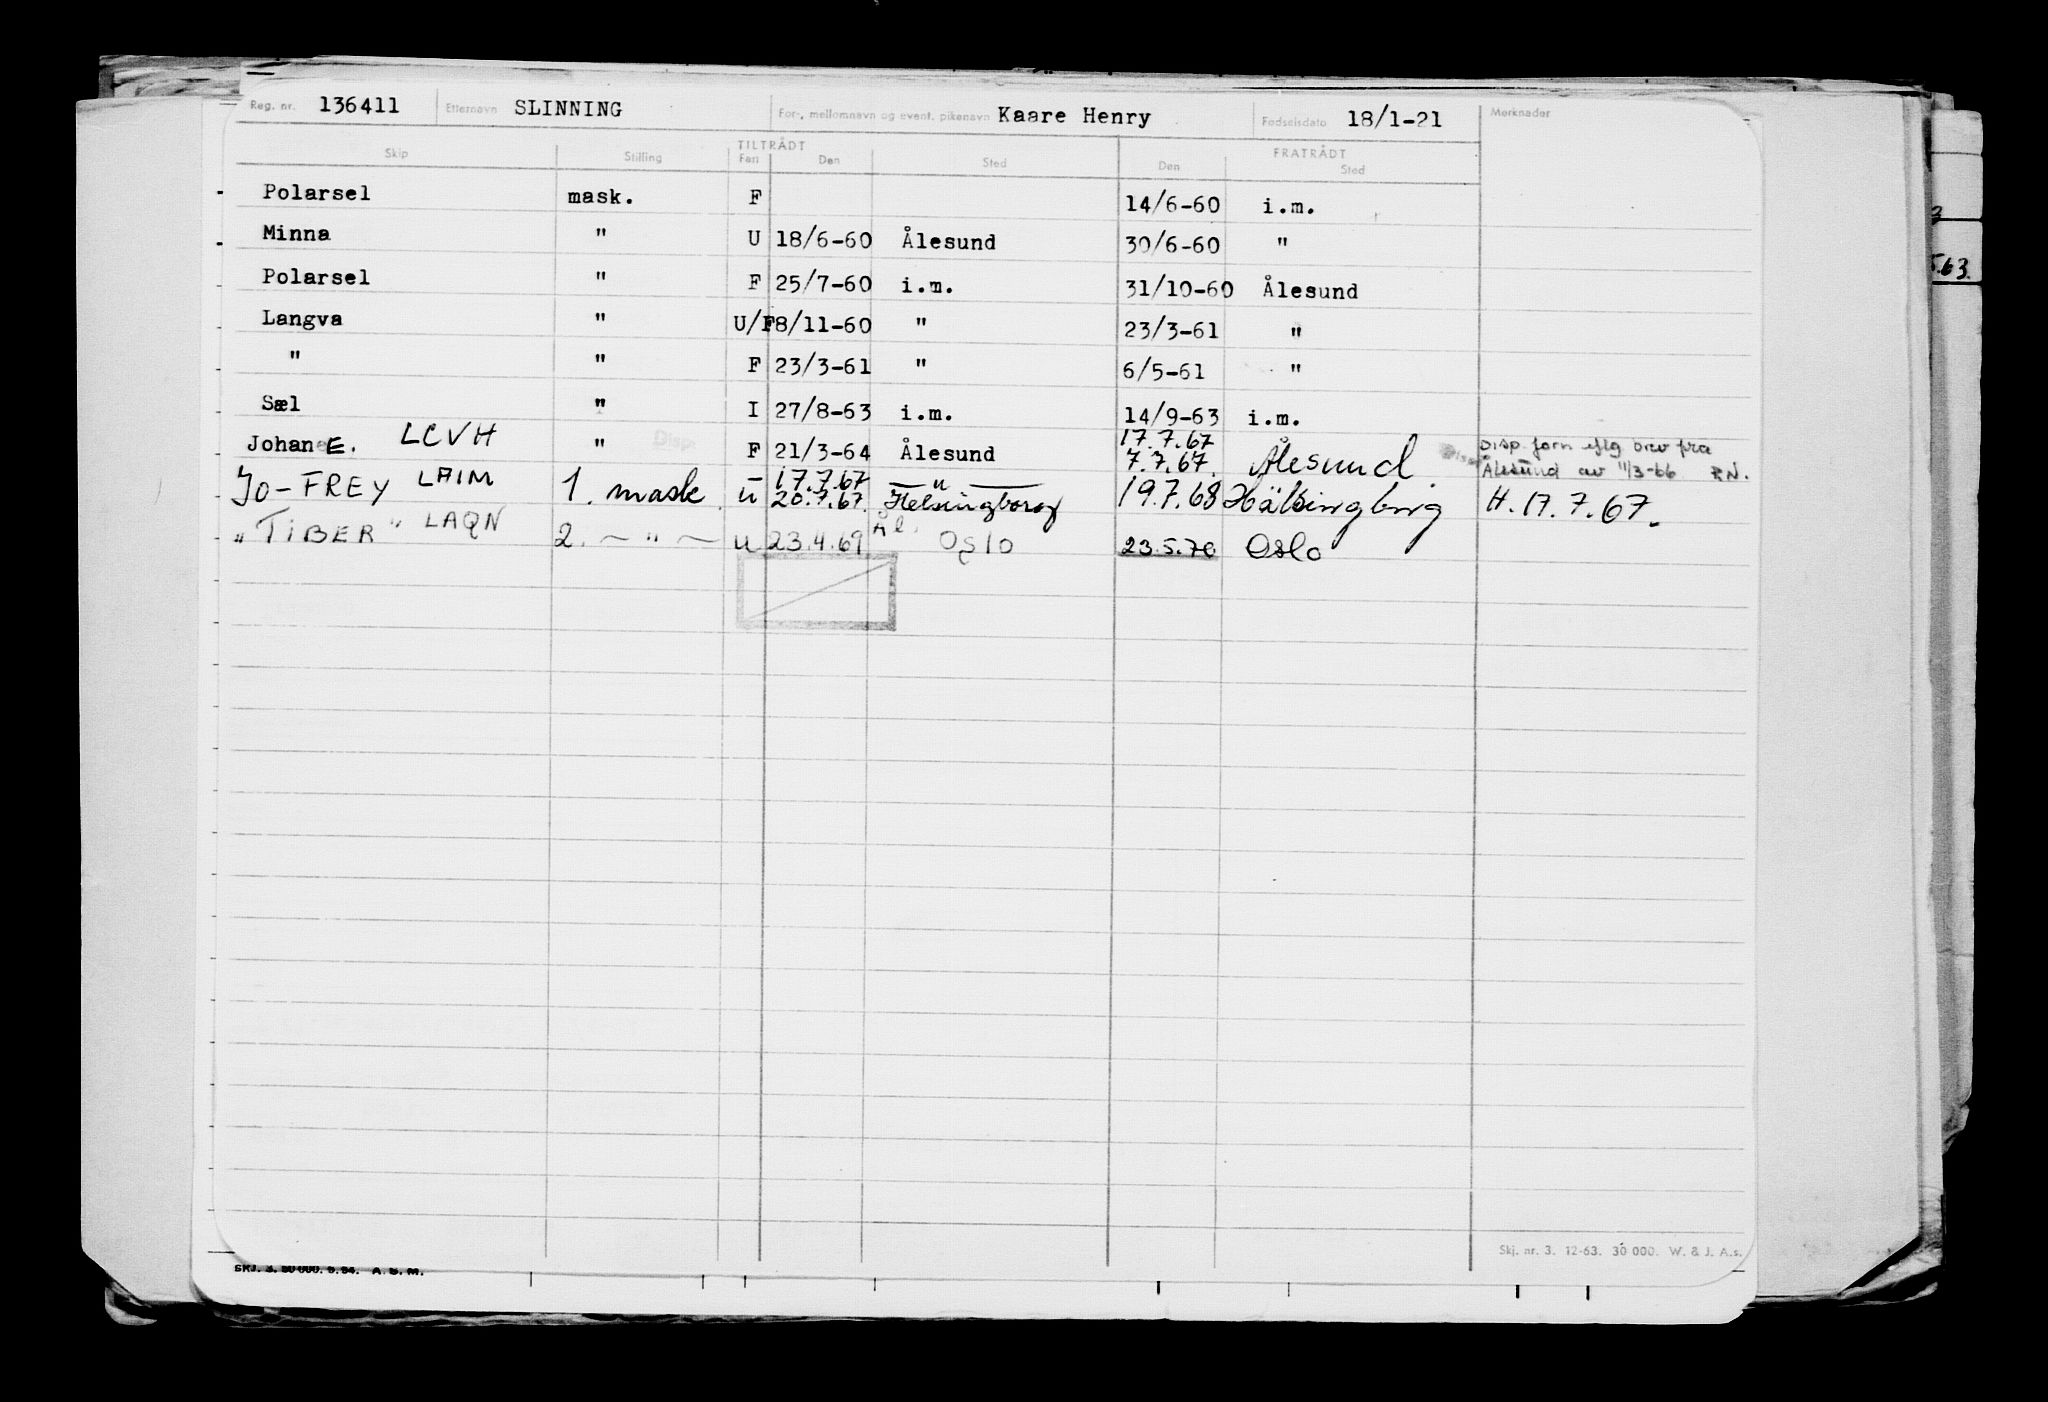 Reg. nr. 136411 Etternavn SLINNING For-, mellomnavn og event. pikenavn Kaare Henry Fødselsdato 18/1-21 Merknader
TILTRÅDT FRATRÅDT
Skip Stilling Fart Den Sted Den Sted
Polarsel mask. F 14/6-60 i.m.
Minna " U 18/6-60 Ålesund 30/6-60 "
Polarsel " F 25/7-60 i.m. 31/10-60 Ålesund
Langva " U/F 8/11-60 " 23/3-61 "
" " F 23/3-61 " 6/5-61 "
Sæl " I 27/8-63 i.m. 14/9-63 i.m.
17.7.67
Johan E. LCVH " Disp. F 21/3-64 Ålesund 7.7.67. Ålesund Disp. Disp. forn iflg brev fra
Ålesund av 11/3-66 RN.
17.7.67 — " —
Jo-FREY LAIM 1. mask. u 20.7.67. Helsingborg 19.7.68 Hälsingborg H. 17.7.67.
Ål.
"TIBER" LAQN 2. — " — u 23.4.69 Oslo 23.5.70 Oslo
5.63.
Skj. nr. 3. 12-63. 30 000. W. & J. A.s.
SKJ. 3. 50 000. 5.54. A. S. M.